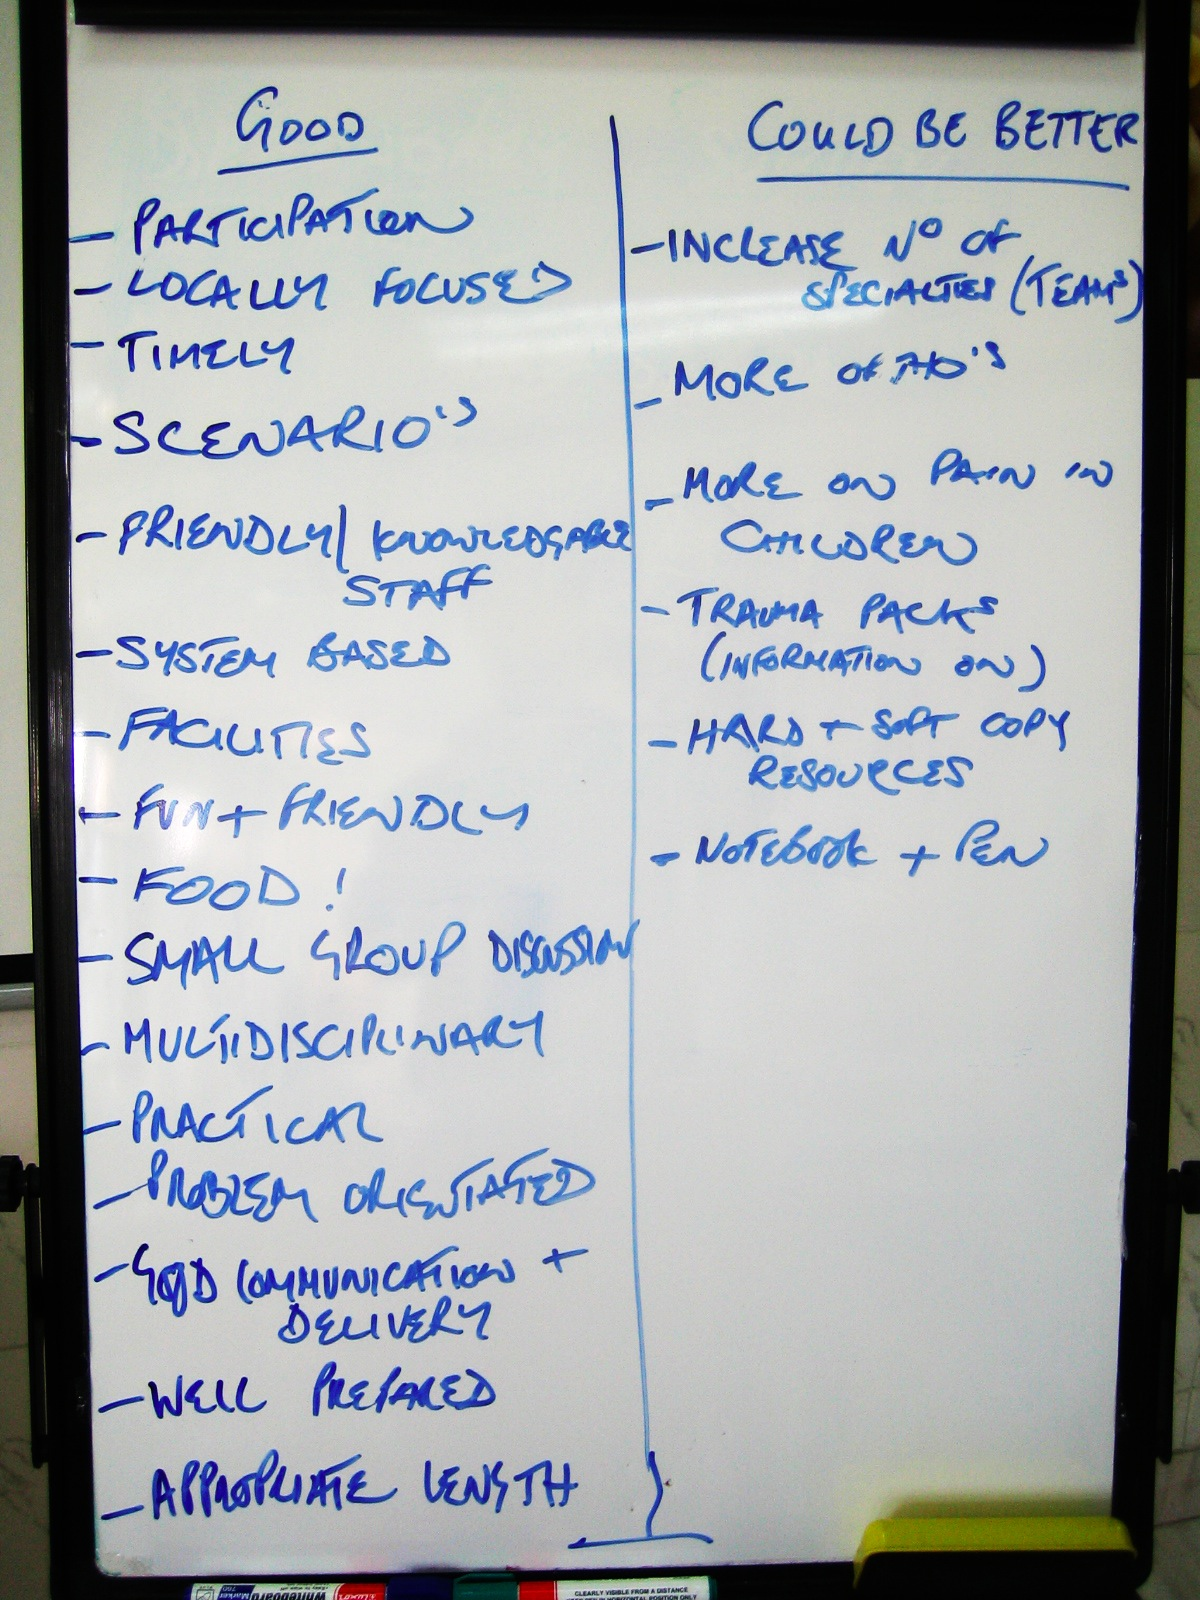 GOOD
- PARTICIPATION
- LOCALLY FOCUSED
- TIMELY
- SCENARIO'S
- FRIENDLY/ KNOWLEDGABLE
STAFF
- SYSTEM BASED
- FACILITIES
- FUN + FRIENDLY
- FOOD!
- SMALL GROUP DISCUSSION
- MULTIDISCIPLINARY
- PRACTICAL
- PROBLEM ORIENTATED
- GOOD COMMUNICATION +
DELIVERY
- WELL PREPARED
- APPROPRIATE LENGTH
COULD BE BETTER
- INCREASE Nº OF
SPECIALTIES (TEAMS)
- MORE OF
- MORE ON PAIN IN
CHILDREN
- TRAUMA PACKS
(INFORMATION ON)
- HARD + SOFT COPY
RESOURCES
- NOTEBOOK + PEN
CLEARLY VISIBLE FROM A DISTANCE